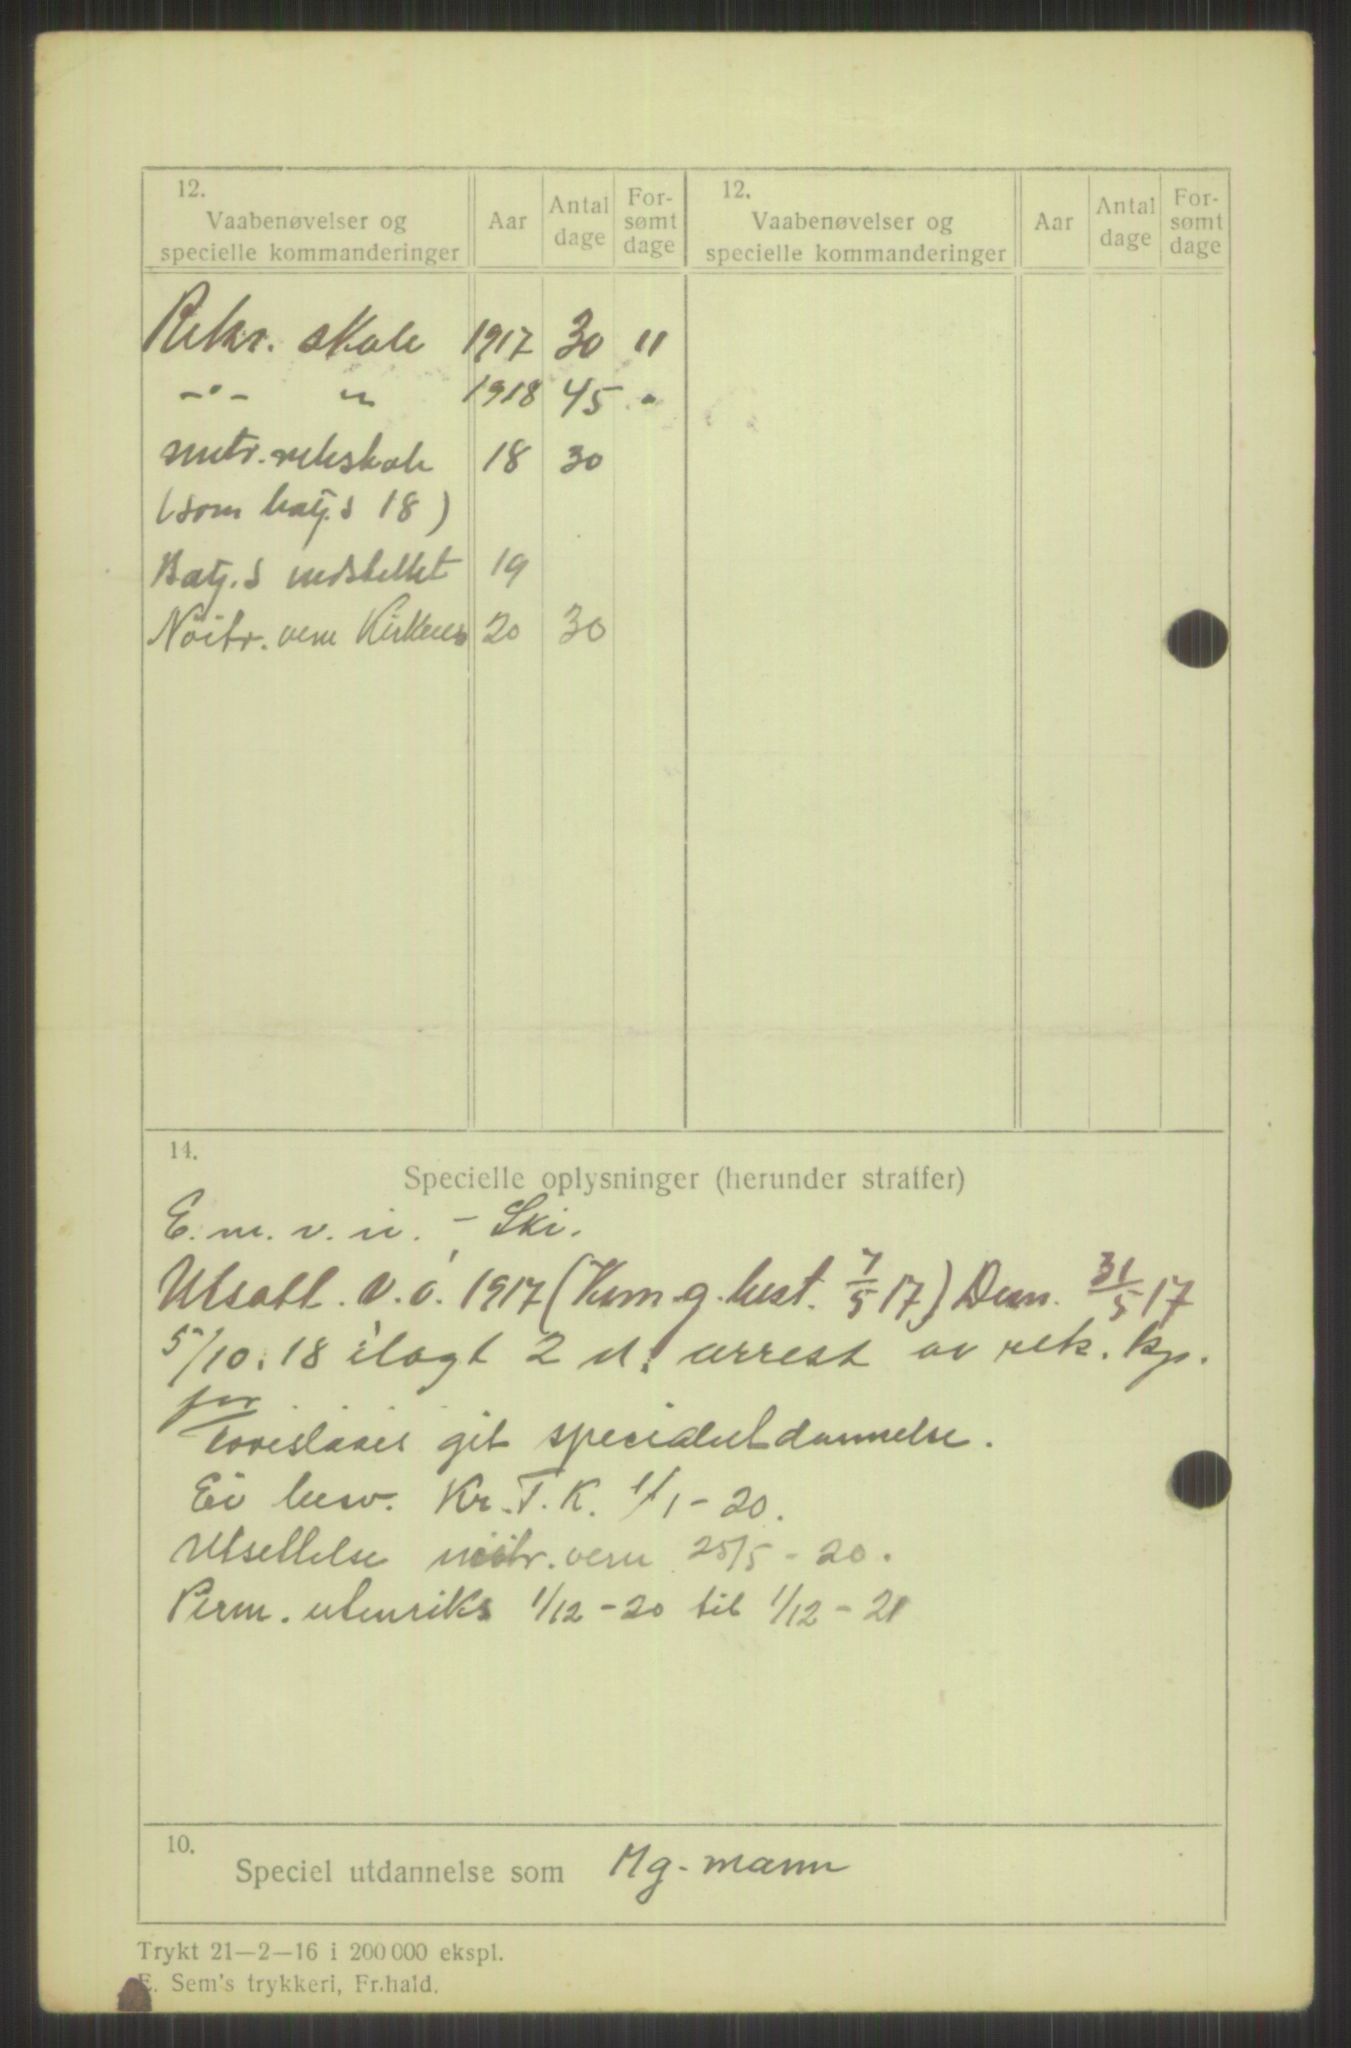 12.
Vaabenøvelser og
specielle kommanderinger
Aar
Antal
dage
For-
sømt
dage
12.
Vaabenøvelser og
specielle kommanderinger
Aar
Antal
dage
For-
sømt
dage
Rekr. skole 1917 30 "
-"- " 1918 45 "
smtr. rekskole 18 30
(som batj.s 18)
Batj.s indstillet 19
Nöitr. vern Kirkenes 20 30
14.
Specielle oplysninger (herunder straffer)
E. m. v. u. - Ski.
Utsatt. v. ö. 1917 (Kom.g. best. 7/5 17) Dem. 31/5 17
5/10. 18 ilagt 2 d. arrest av rek. kp.
for
git specialutdannelse.
Ei besv. Kr. T. K. 1/1-20.
Utsettelse nöitr. vern 25/5 - 20.
Perm. utenriks 1/12-20 til 1/12-21
10.
Speciel utdannelse som Mg-mann
Trykt 21—2—16 i 200 000 ekspl.
E. Sem's trykkeri, Fr.hald.